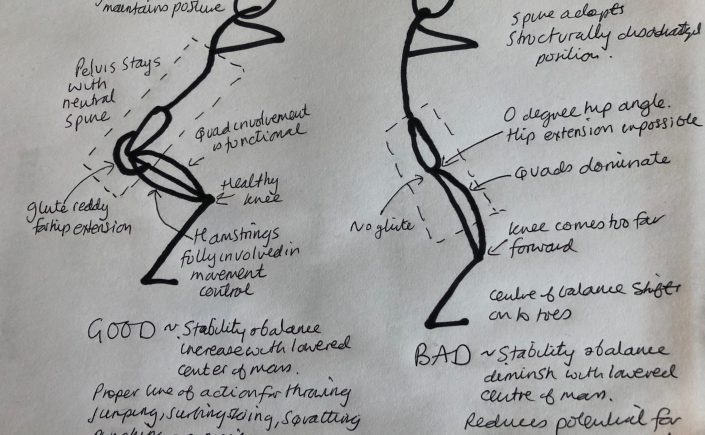 maintains posture
Pelvis stays
with
neutral
spine
Quad involvement
is functional
Healthy
knee
glute reddy
for hip extension
Hamstrings
fully involved in
movement
control
GOOD ~ Stability & balance
increase with lowered
center of mass.
Proper line of action for throwing
jumping, surfing, skiing, squatting
spine adopts
structurally disadvantaged
position.
0 degree hip angle.
Hip extension impossible
Quads dominate
No glute
knee comes too far
forward
centre of balance shifts
on to toes
BAD ~ Stability & balance
diminish with lowered
centre of mass.
Reduces potential for